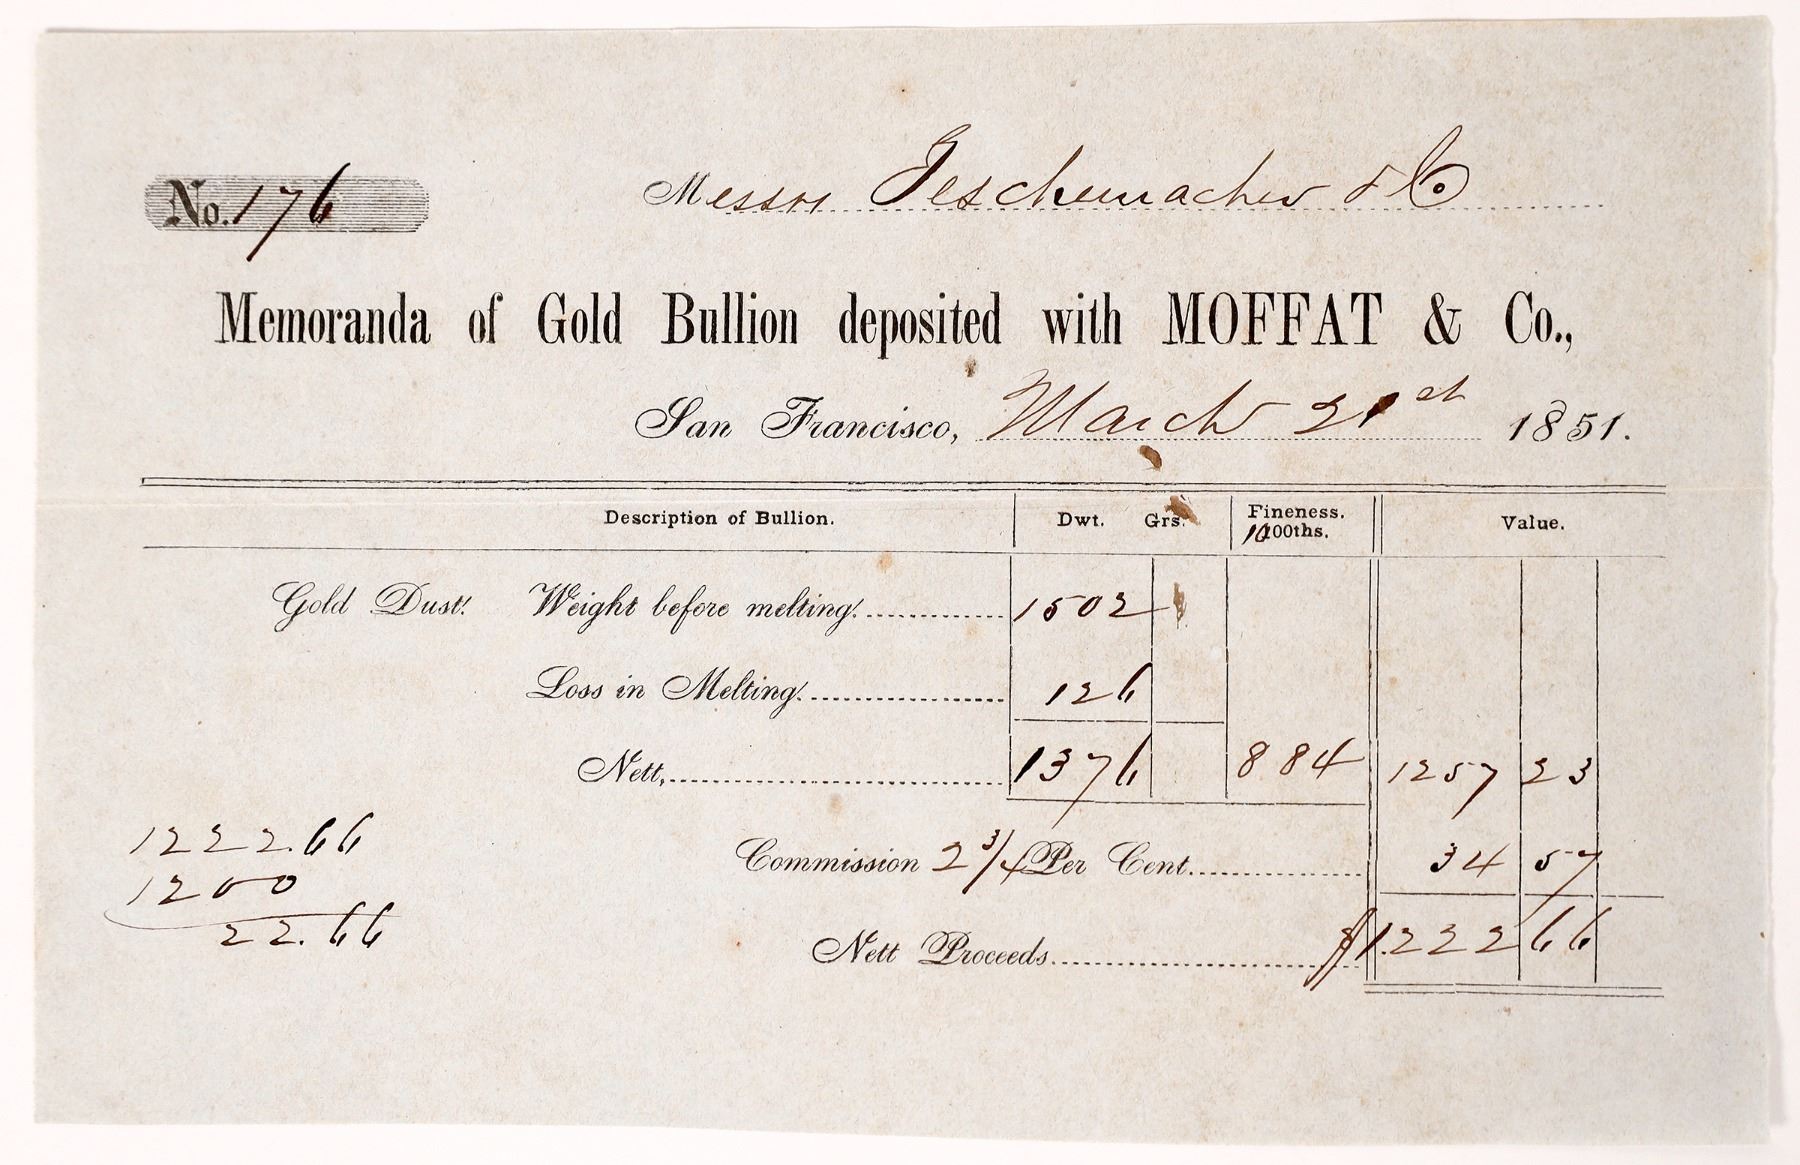 No. 176
Messrs Teschemacher & Co
Memoranda of Gold Bullion deposited with MOFFAT & Co.,
San Francisco, March 21st 1851.
Description of Bullion. Dwt. Grs. Fineness. 1000ths. Value.
Gold Dust. Weight before melting. 1502
Loss in Melting. 126
Nett, 1376 884 1257 23
Commission 2 3/4 Per Cent. 34 57
Nett Proceeds. $1.222 66
1222.66
1200
22.66